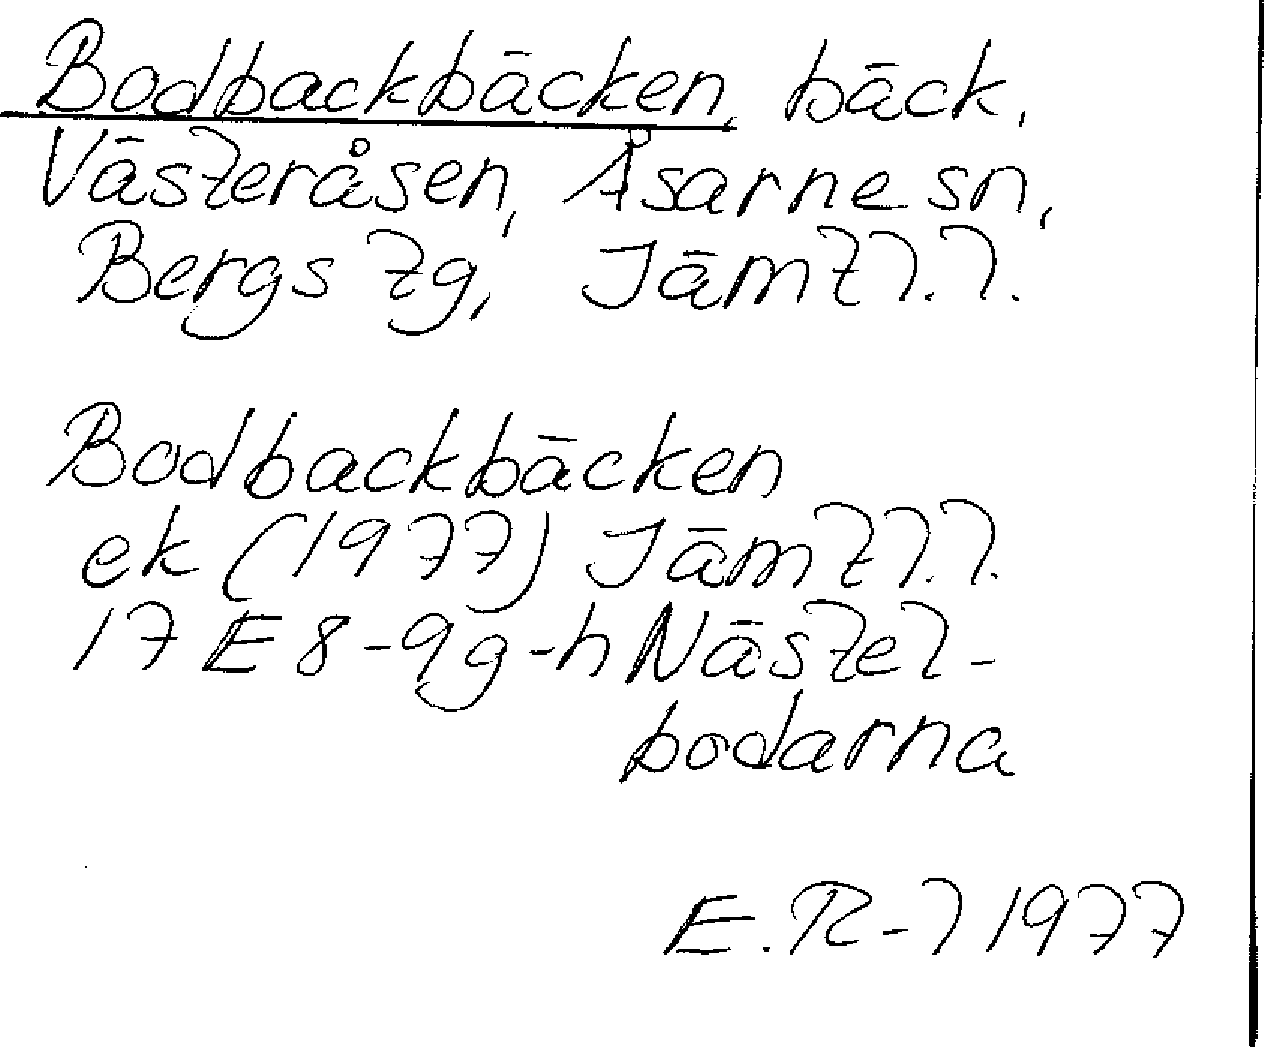 Bodbackbäcken, bäck,
Västeråsen, Åsarne sn,
Bergs tg, Jämtl.l.
Bodbackbäcken
ek (1977) Jämtl.l.
17 E 8-9g-h Nästel-
bodarna
E.R-l 1977